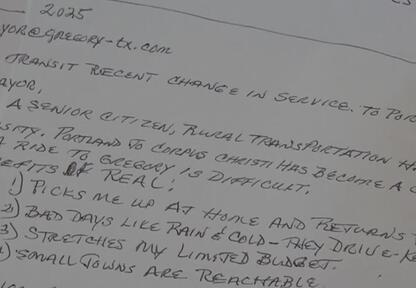 2025
YOR@GREGORY-TX.COM
TRANSIT RECENT CHANGE IN SERVICE. TO POR
AYOR,
A SENIOR CITIZEN, RURAL TRANSPORTATION H
SITY. PORTLAND TO CORPUS CHRISTI HAS BECOME A
A RIDE TO GREGORY IS DIFFICULT.
EFITS REAL:
1) PICKS ME UP AT HOME AND RETURNS
2) BAD DAYS LIKE RAIN & COLD-THEY DRIVE-KE
3) STRETCHES MY LIMITED BUDGET.
) SMALL TOWNS ARE REACHABLE